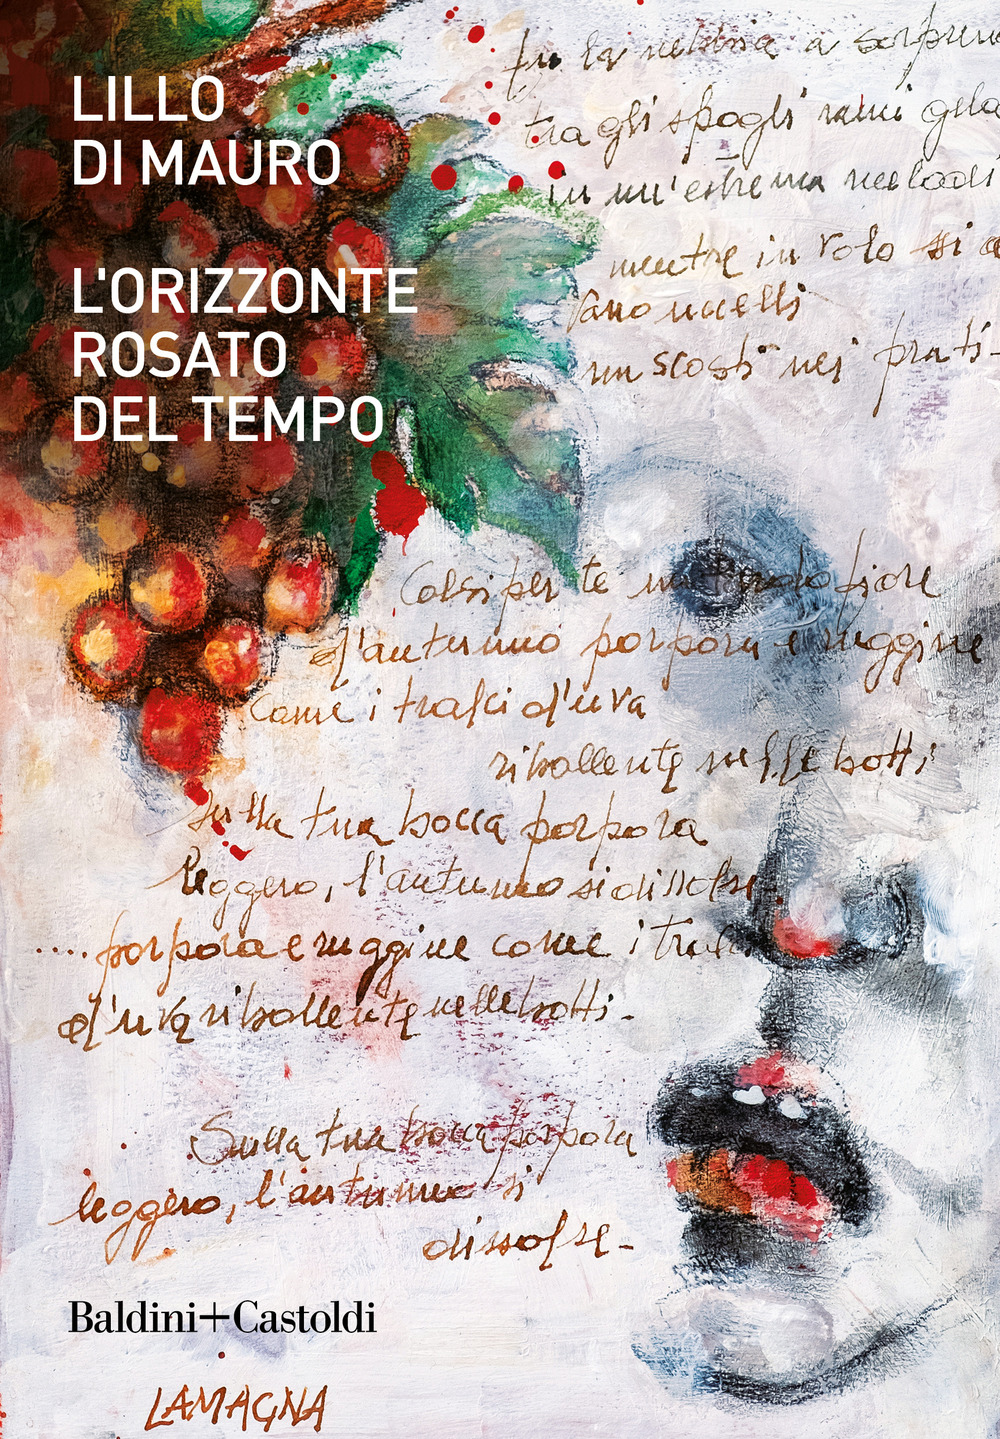 LILLO
DI MAURO
L'ORIZZONTE
ROSATO
DEL TEMPO
tu la nebbia a sorpren
tra gli spogli rami gela
in un'estrema melodi
mentre in volo si a
uccelli
nei prati-
Colsi per te un fiore
d'autunno porpora e ruggine
Come i tralci d'uva
ribollente nelle botti
Sulla tua bocca porpora
leggero, l'autunno si dissolse-
.... porpora e ruggine come i tralci
d'uva ribollente nelle botti-
Sulla tua bocca porpora
leggero, l'autunno si
dissolse-
Baldini+Castoldi
LAMAGNA